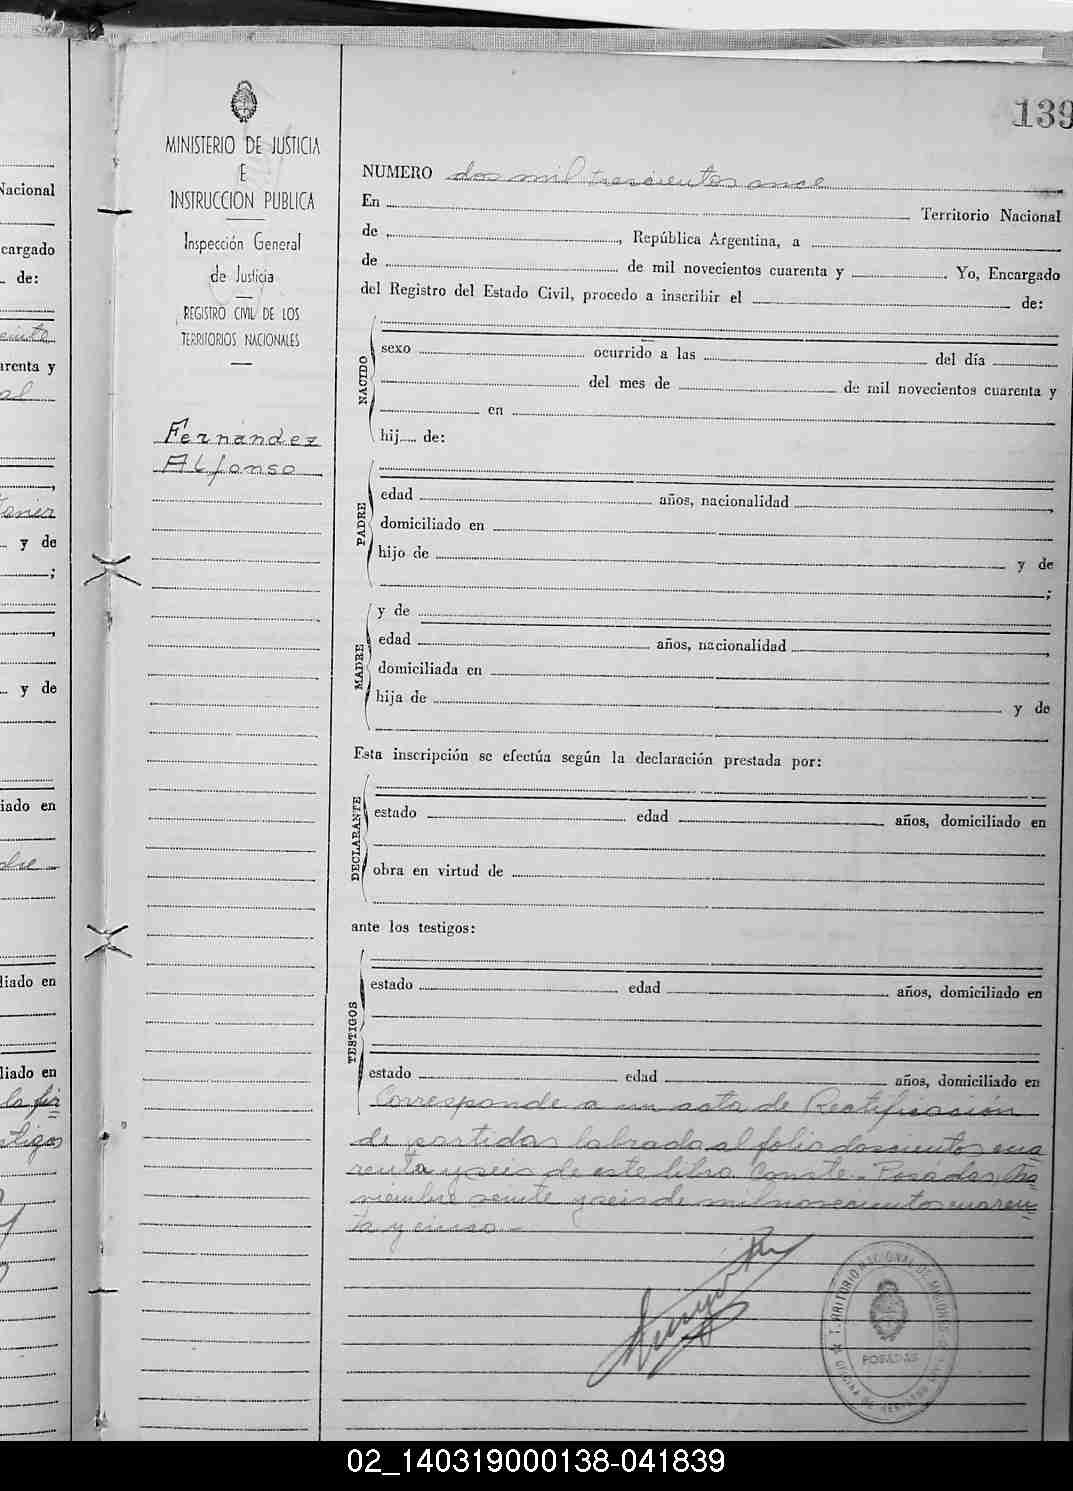 139
MINISTERIO DE JUSTICIA
E
INSTRUCCION PUBLICA
Inspección General
de Justicia
REGISTRO CIVIL DE LOS
TERRITORIOS NACIONALES
Fernández
Alfonso
Nacional
cargado
de:
arenta y
y de
;
y de
iado en
liado en
liado en
NUMERO dos mil trescientos once
En Territorio Nacional
de , República Argentina, a
de de mil novecientos cuarenta y . Yo, Encargado
del Registro del Estado Civil, procedo a inscribir el de:
NACIDO
sexo ocurrido a las del día
del mes de de mil novecientos cuarenta y
en
hij de:
PADRE
edad años, nacionalidad ,
domiciliado en
hijo de y de
;
MADRE
y de
edad años, nacionalidad ,
domiciliada en
hija de y de
Esta inscripción se efectúa según la declaración prestada por:
DECLARANTE
estado edad años, domiciliado en
obra en virtud de
ante los testigos:
TESTIGOS
estado edad años, domiciliado en
estado edad años, domiciliado en
Corresponde a un acta de Rectificación
de partidas labrada al folio doscientos cua
renta y seis de este libro. Conste.- Posadas, No
viembre veinte y seis de mil novecientos cuaren
ta y cinco.-
TERRITORIO NACIONAL DE MISIONES
POSADAS
02_140319000138-041839